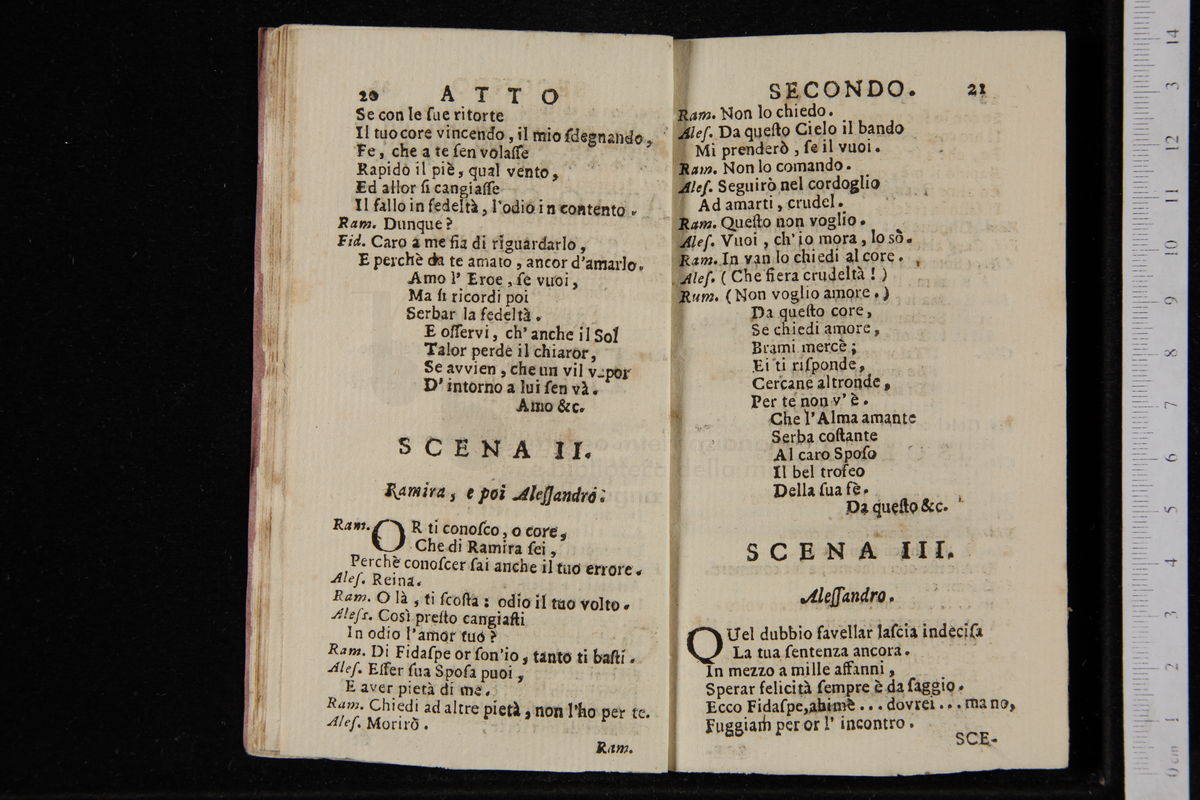 20 ATTO
Se con le ſue ritorte
Il tuo core vincendo, il mio ſdegnando,
Fe, che a te ſen volaſſe
Rapido il piè, qual vento,
Ed allor ſi cangiaſſe
Il fallo in fedeltà, l'odio in contento.
Ram. Dunque?
Fid. Caro a me fia di riguardarlo,
E perchè da te amato, ancor d'amarlo.
Amo l' Eroe, ſe vuoi,
Ma ſi ricordi poi
Serbar la fedeltà.
E oſſervi, ch' anche il Sol
Talor perde il chiaror,
Se avvien, che un vil vapor
D' intorno a lui ſen và.
Amo &c.
SCENA II.
Ramira, e poi Aleſſandro.
Ram. OR ti conoſco, o core,
Che di Ramira ſei,
Perchè conoſcer ſai anche il tuo errore.
Aleſ. Reina.
Ram. O là, ti ſcoſta: odio il tuo volto.
Aleſs. Così preſto cangiaſti
In odio l'amor tuo?
Ram. Di Fidaſpe or ſon'io, tanto ti baſti.
Aleſ. Eſſer ſua Spoſa puoi,
E aver pietà di me.
Ram. Chiedi ad altre pietà, non l'ho per te.
Aleſ. Morirò.
Ram.
SECONDO. 21
Ram. Non lo chiedo.
Aleſ. Da queſto Cielo il bando
Mi prenderò, ſe il vuoi.
Ram. Non lo comando.
Aleſ. Seguirò nel cordoglio
Ad amarti, crudel.
Ram. Queſto non voglio.
Aleſ. Vuoi, ch' io mora, lo sò.
Ram. In van lo chiedi al core.
Aleſ. (Che fiera crudeltà!)
Ram. (Non voglio amore.)
Da queſto core,
Se chiedi amore,
Brami mercè;
Ei ti riſponde,
Cercane altronde,
Per te non v' è.
Che l'Alma amante
Serba coſtante
Al caro Spoſo
Il bel trofeo
Della ſua fè.
Da queſto &c.
SCENA III.
Aleſſandro.
QUel dubbio favellar laſcia indeciſa
La tua ſentenza ancora.
In mezzo a mille affanni,
Sperar felicità ſempre è da ſaggio.
Ecco Fidaſpe, ahimè... dovrei... ma no,
Fuggiam per or l' incontro.
SCE-